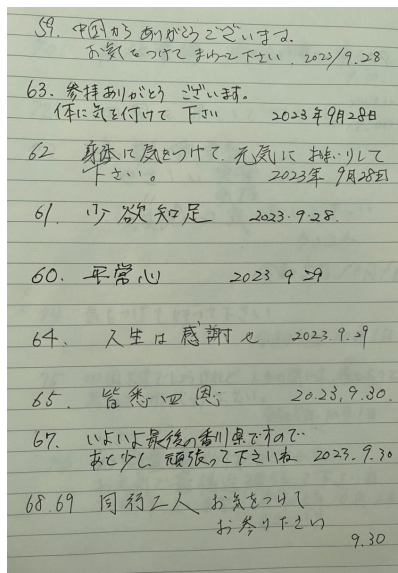 59. 中国からありがとうございます。
お気をつけてまわって下さい. 2023/9.28
63. 参拝ありがとう ございます。
体に気を付けて 下さい 2023年9月28日
62 身体に気をつけて、元気にお参りして
下さい。 2023年 9月28日
61. 少欲知足 2023.9.28.
60. 平常心 2023 9 29
64. 人生は感謝也 2023.9.29
65. 皆悉四恩 2023.9.30.
67. いよいよ最後の香川県ですので
あと少し 頑張って下さいね 2023.9.30
68.69 同行二人 お気をつけて
お参り下さい
9.30